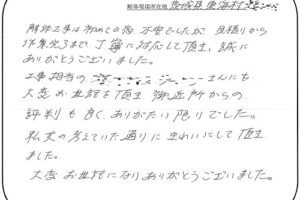 解体現場所在地 茨城県東海村
解体工事は初めての為 不安でしたが 見積りから
作業完了まで丁寧に対応して頂き、誠に
ありがとうございました。
工事担当の さんにも
大変お世話を頂き 御近所からの
評判も良く、ありがたい限りでした。
私共の考えていた通りに きれいにして頂き
ました。
大変お世話になりありがとうございました。